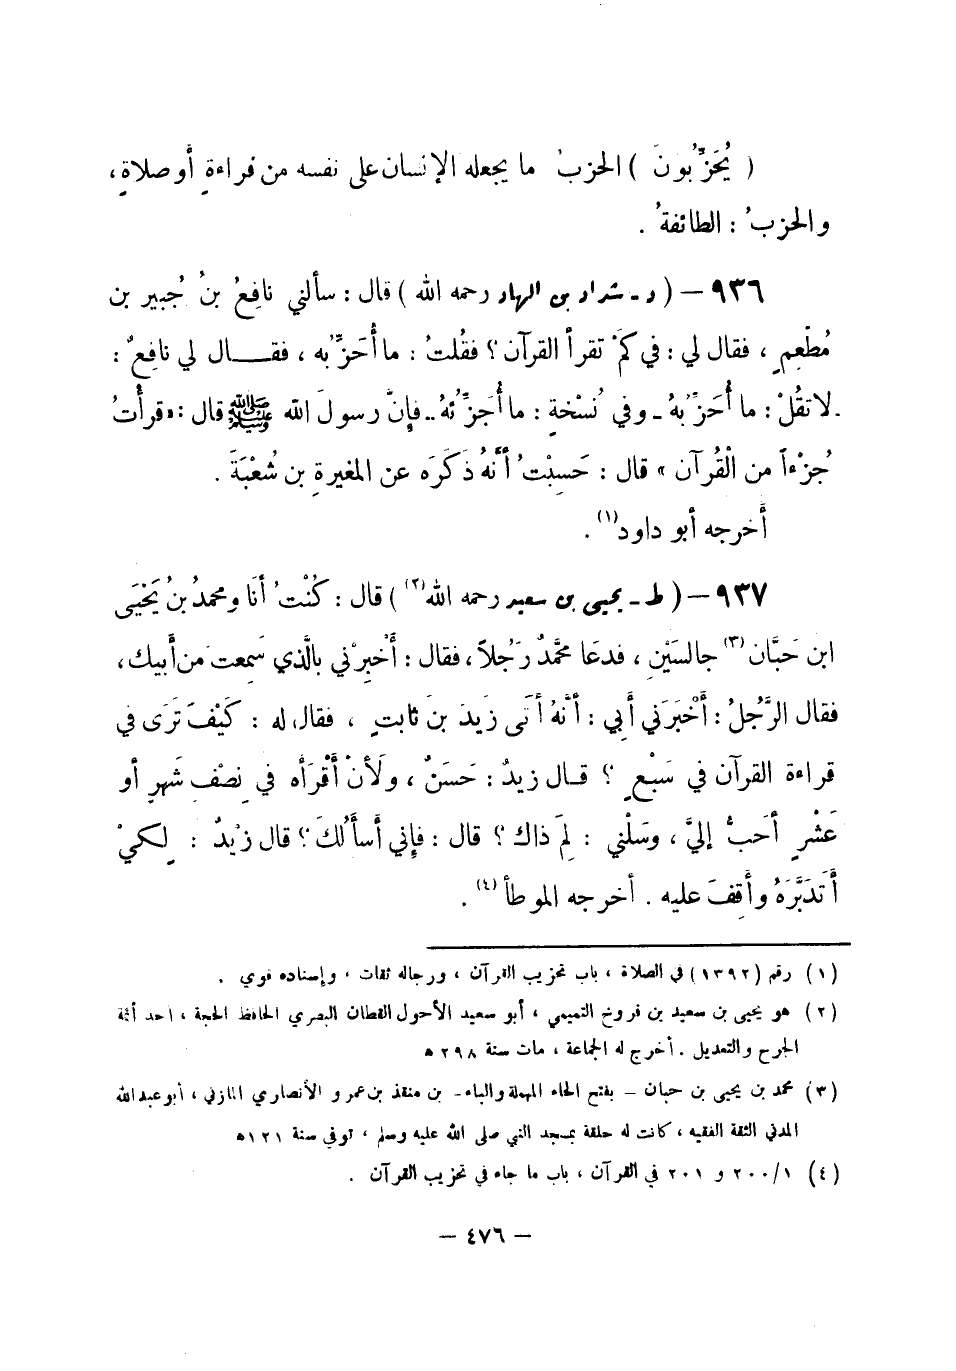 ( يُحَزِّبُونَ ) الحزبُ ما يجعله الإنسان على نفسه من قراءةٍ أو صلاةٍ ،
والحزبُ : الطائفةُ .
٩٣٦ – ( د - شداد بن الهاد رحمه الله ) قال : سألني نافِعُ بنُ جُبير بن
مُطْعِمٍ ، فقال لي : في كَمْ تقرأ القرآن ؟ فقُلتُ : ما أُحَزِّبُه ، فقـــال لي نافِعٌ :
لا تقُلْ : ما أُحَزِّبهُ - وفي نُسْخةٍ : ما أُجَزِّئهُ - فإنَّ رسولَ الله ﷺ قال : « قرأْتُ
جُزْءاً من الْقُرآن » قال : حَسِبْتُ أنَّهُ ذَكَرَه عن المغيرةِ بن شُعْبَةَ .
أخرجه أبو داود(١) .
٩٣٧ – ( ط - يحيى بن سعيد رحمه الله(٢) ) قال : كُنْتُ أنَا ومحمدُ بنُ يَحْيَى
ابن حَبَّان(٣) جالسَيْنِ ، فدعَا محمَّدٌ رَجُلاً ، فقال : أَخْبِرْني بالَّذي سَمِعتَ من أَبيك ،
فقال الرَّجُلُ : أَخْبَرَني أَبِي : أنَّهُ أَتَى زَيدَ بنَ ثابتٍ ، فقال له : كَيْفَ تَرَى في
قراءة القرآن في سَبْعٍ ؟ قـال زيدٌ : حَسَنٌ ، ولَأنْ أَقْرَأَه في نِصْفِ شَهرٍ أو
عَشْرٍ أحَبُّ إليَّ ، وسَلْني : لِمَ ذاك ؟ قال : فإني أسأَلُكَ ؟ قال زيْدٌ : لِكيْ
أَتَدَبَّرَهُ وأَقِفَ عليه . أخرجه الموطأ(٤) .
(١) رقم (١٣٩٢) في الصلاة ، باب تحزيب القرآن ، ورجاله ثقات ، وإسناده قوي .
(٢) هو يحيى بن سعيد بن فروخ التميمي ، أبو سعيد الأحول القطان البصري الحافظ الحجة ، احد أئمة
الجرح والتعديل . أخرج له الجماعة ، مات سنة ٢٩٨ ه
(٣) محمد بن يحيى بن حبان – بفتح الحاء المهملة والباء - بن منقذ بن عمر و الأنصاري المازني ، أبو عبد الله
المدني الثقة الفقيه ، كانت له حلقة بمسجد النبي صلى الله عليه وسلم ، توفي سنة ١٢١ ه
(٤) ٢٠٠/١ و ٢٠١ في القرآن ، باب ما جاء في تحزيب القرآن .
– ٤٧٦ –